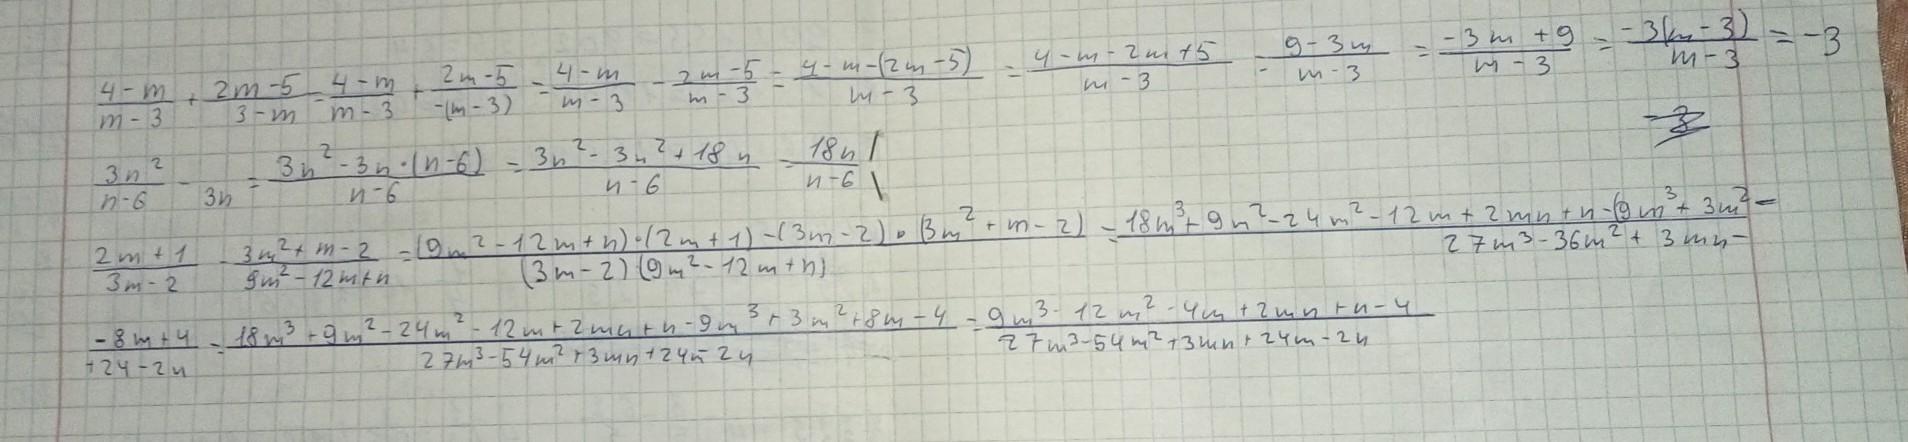 (4-m)/(m-3) + (2m-5)/(3-m) = (4-m)/(m-3) + (2m-5)/(-(m-3)) = (4-m)/(m-3) - (2m-5)/(m-3) = (4-m-(2m-5))/(m-3) = (4-m-2m+5)/(m-3) = (9-3m)/(m-3) = (-3m+9)/(m-3) = (-3(m-3))/(m-3) = -3
3n²/(n-6) - 3n = (3n²-3n·(n-6))/(n-6) = (3n²-3n²+18n)/(n-6) = 18n/(n-6)
(2m+1)/(3m-2) - (3m²+m-2)/(9m²-12m+n) = ((9m²-12m+n)·(2m+1)-(3m-2)·(3m²+m-2))/((3m-2)(9m²-12m+n)) = (18m³+9m²-24m²-12m+2mn+n-(9m³+3m²-)/(27m³-36m²+3mn-)
(-8m+4)/(+24-2n) = (18m³+9m²-24m²-12m+2mn+n-9m³+3m²+8m-4)/(27m³-54m²+3mn+24m-2n) = (9m³-12m²-4m+2mn+n-4)/(27m³-54m²+3mn+24m-2n)